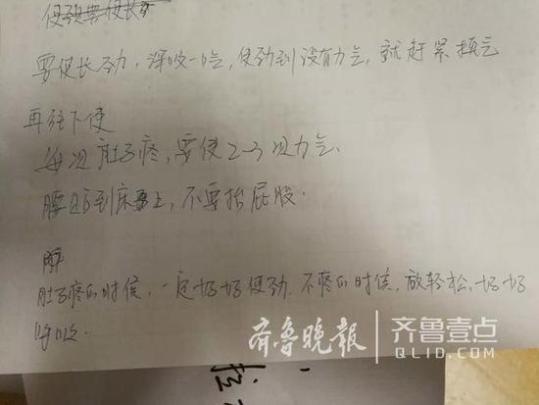 要使长劲，深吸一口气，使劲到没有力气，就赶紧换气
再往下使
每次肚子疼，要使2-3次力气、
腰贴到床上，不要抬屁股.
肚子疼的时候，一定好好使劲. 不疼的时候，放轻松，好好
呼吸.
齐鲁晚报
齐鲁壹点
QLID.COM